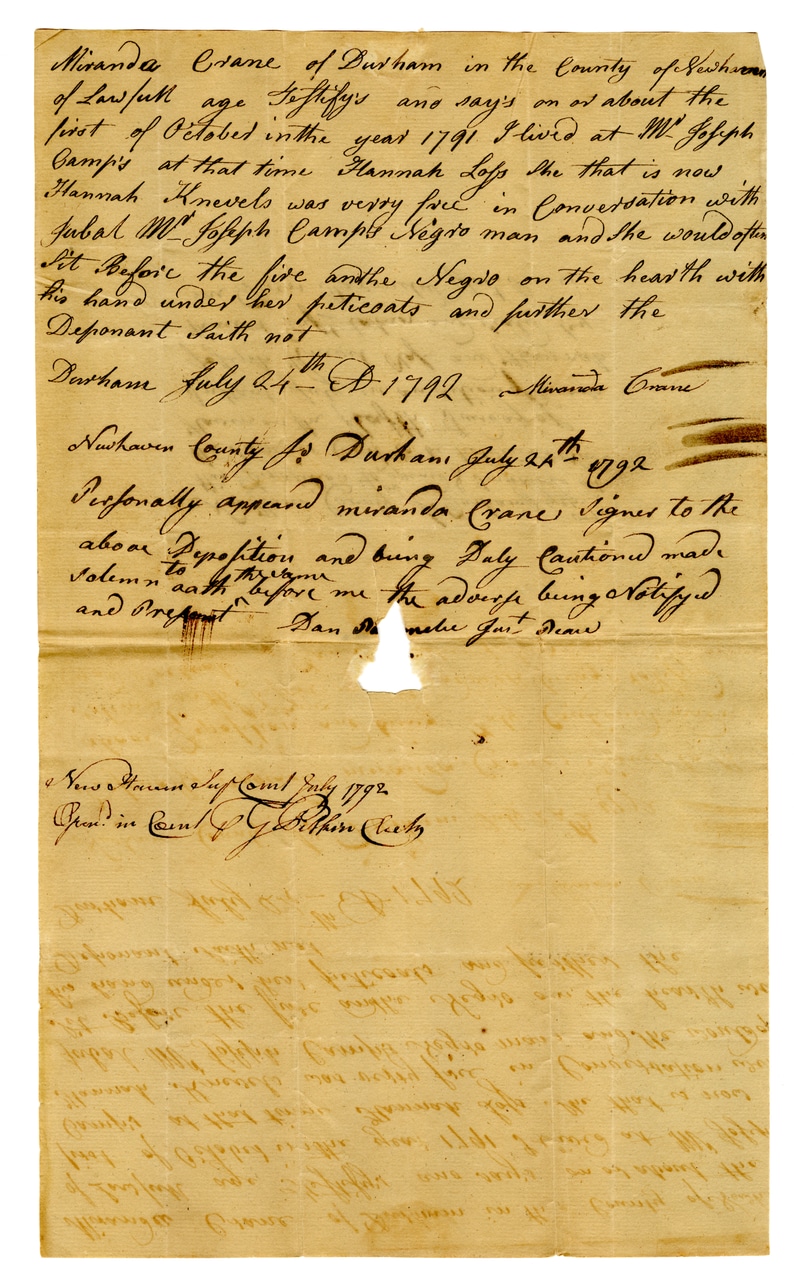 Miranda Crane of Durham in the County of Newhaven
of Lawfull age Testifys and says on or about the
first of October in the year 1791 I lived at Mr Joseph
Camps at that time Hannah Loss She that is now
Hannah Knevels was verry free in Conversation with
Jubal Mr Joseph Camps Negro man and She would often
Sit Before the fire and the Negro on the hearth with
his hand under her peticoats and further the
Deponant Saith not
Durham July 24th AD 1792 Miranda Crane
Newhaven County Ss Durham July 24th 1792
Personally appeared miranda Crane Signer to the
above Deposition and being Duly Cautioned made
Solemn oath to the same before me the adverse being Notifyed
and Present Dan Just Peace
New Haven Supr Court July 1792
in Court G Pitkin Clerk